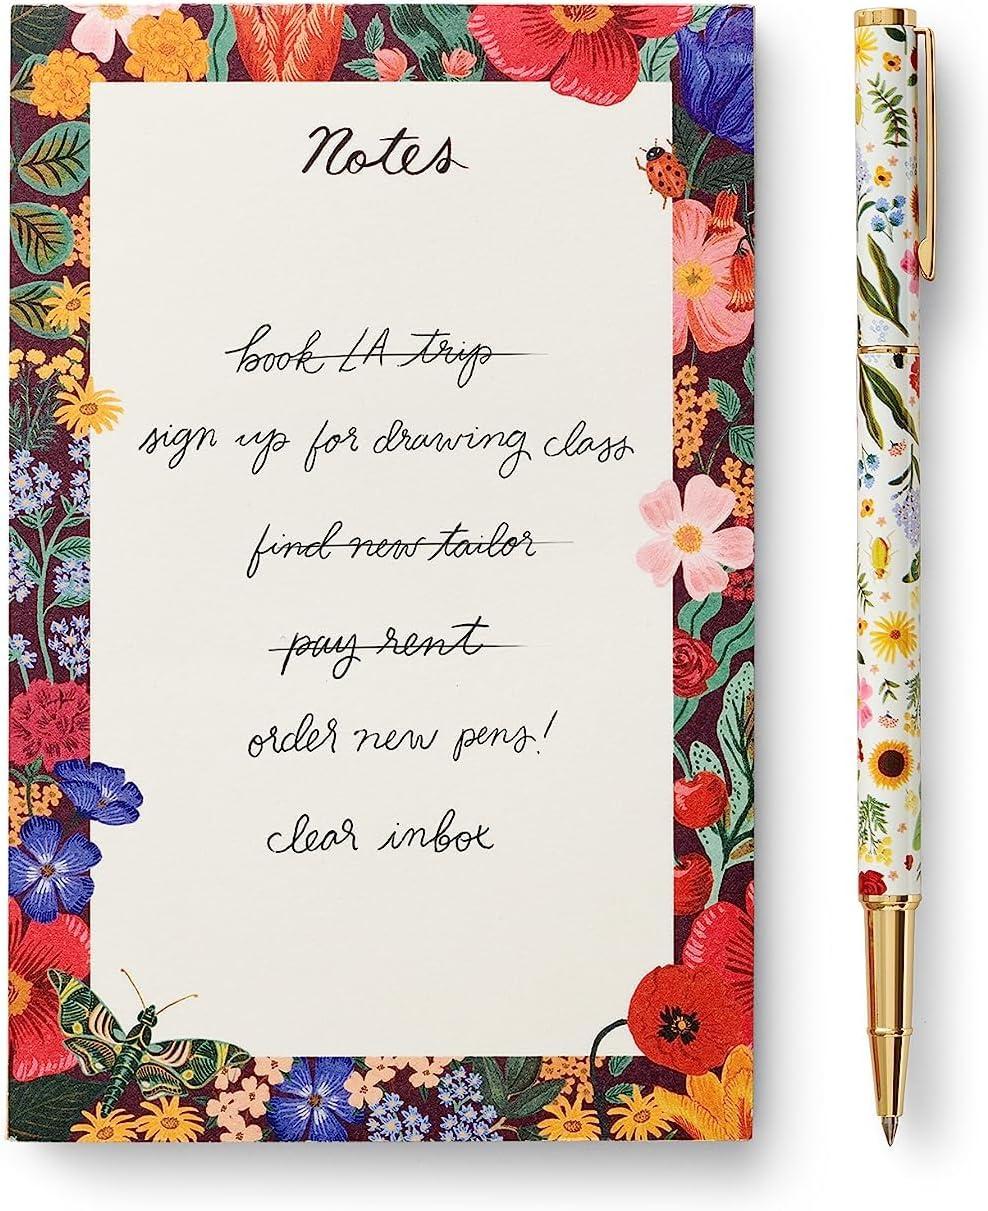 Notes
book LA trip
sign up for drawing class
find new tailor
pay rent
order new pens!
clear inbox